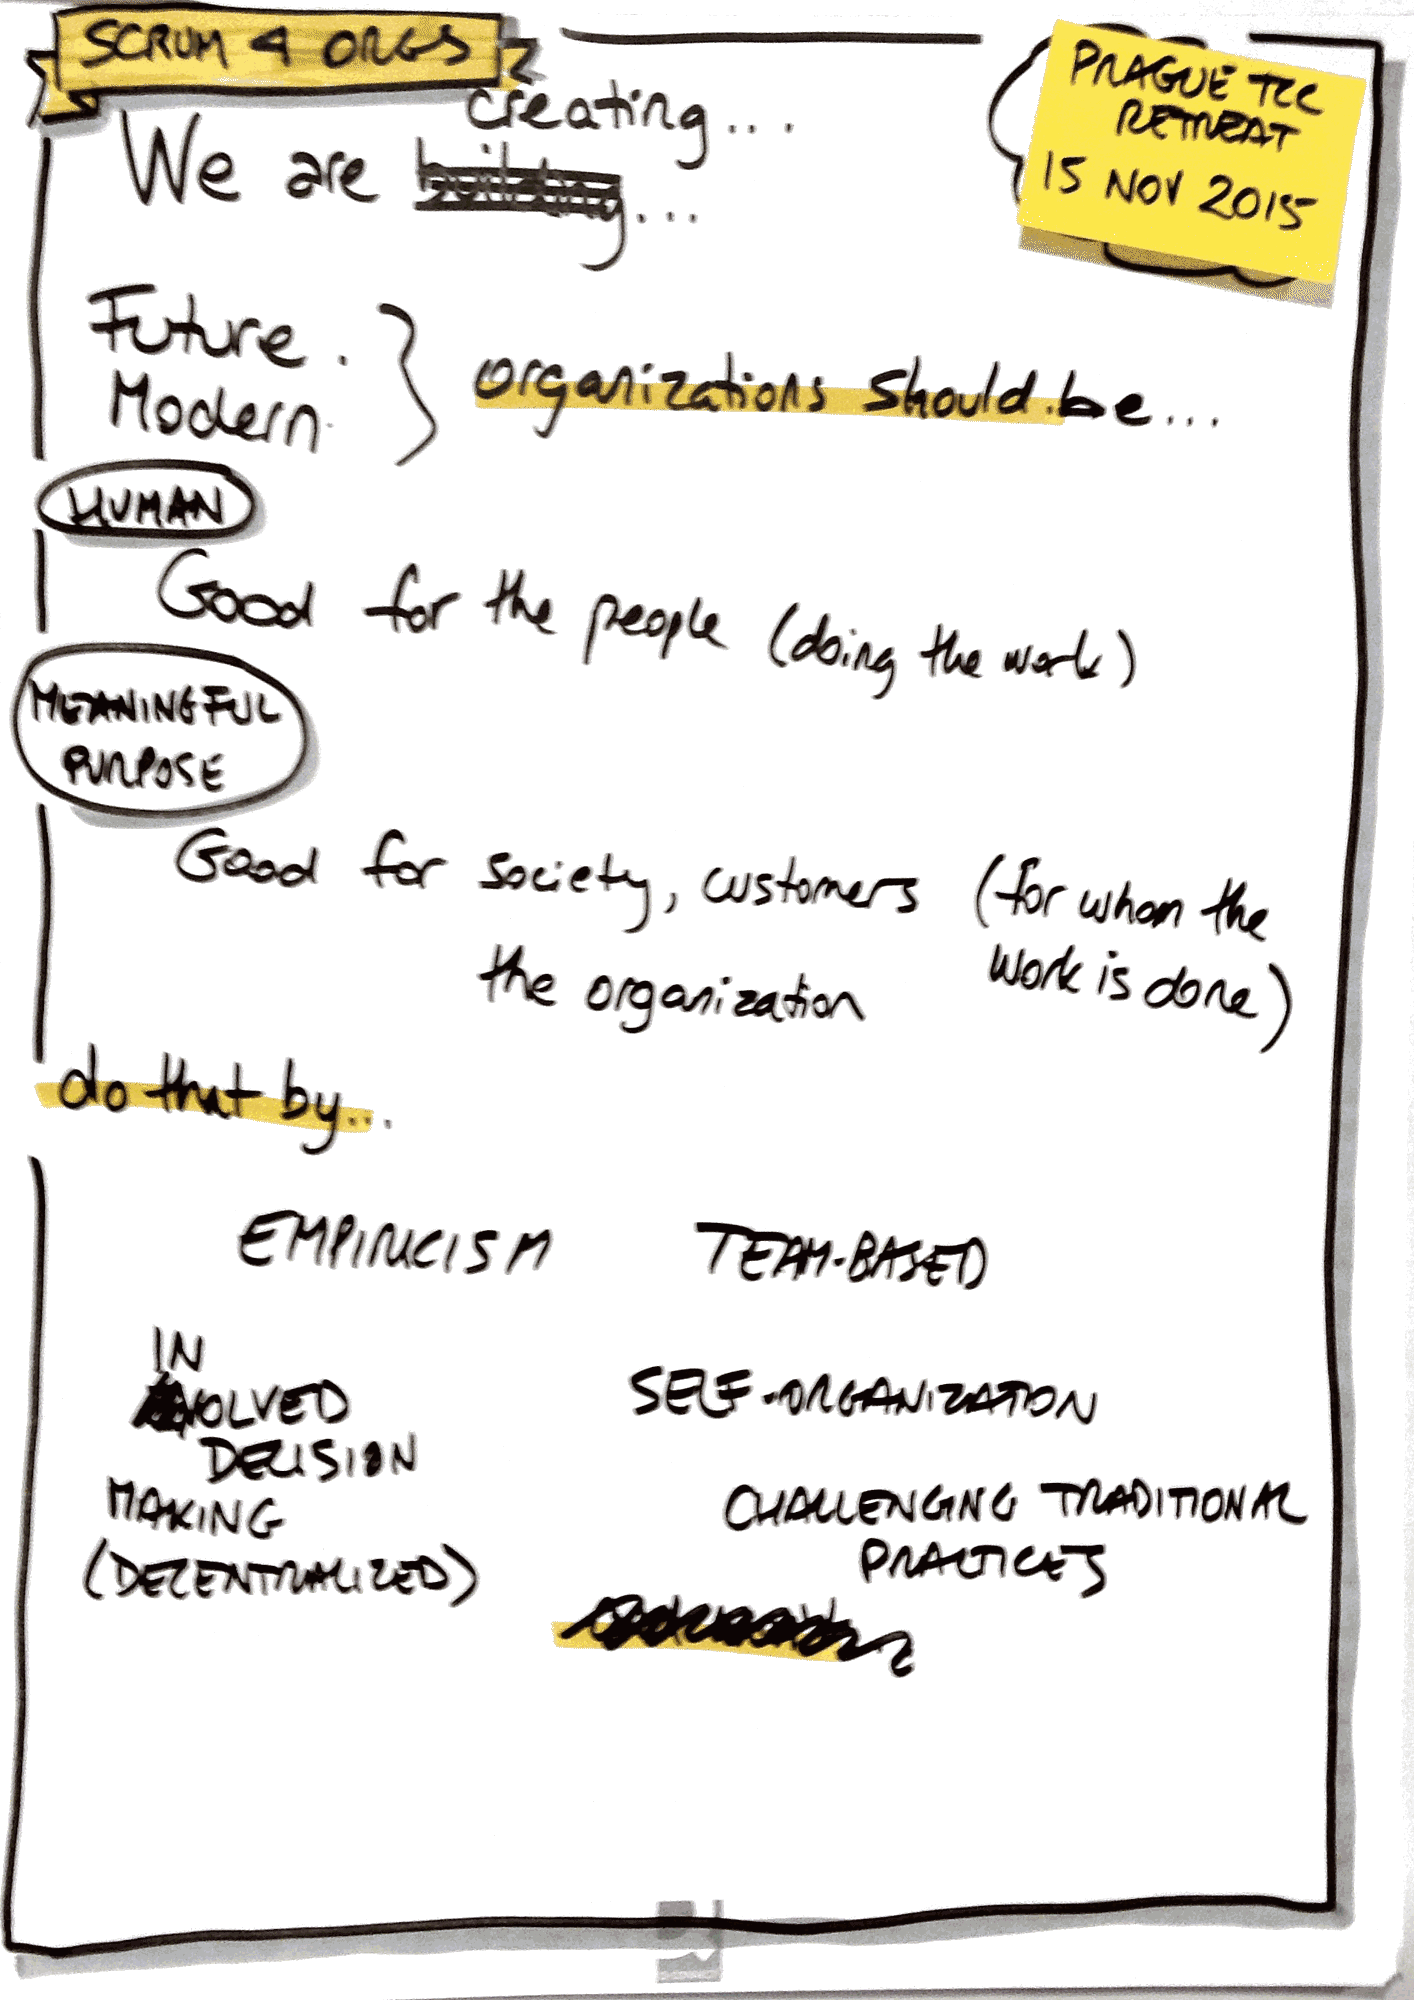 SCRUM 4 ORGS
PRAGUE TCC
RETREAT
15 NOV 2015
creating...
We are building...
Future
Modern
organizations should be...
HUMAN
Good for the people (doing the work)
MEANINGFUL
PURPOSE
Good for society, customers (for whom the
the organization work is done)
do that by...
EMPIRICISM TEAM-BASED
IN
VOLVED SELF-ORGANIZATION
DECISION
MAKING CHALLENGING TRADITIONAL
(DECENTRALIZED) PRACTICES